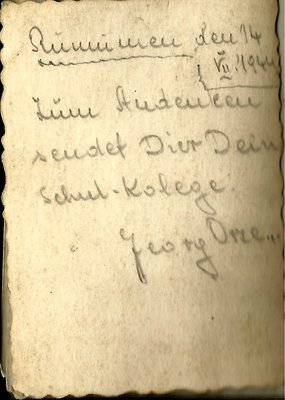 den 14
VII. 1944
Zum Andenken
sendet Dier Dein
Schul-Kolege.
Georg